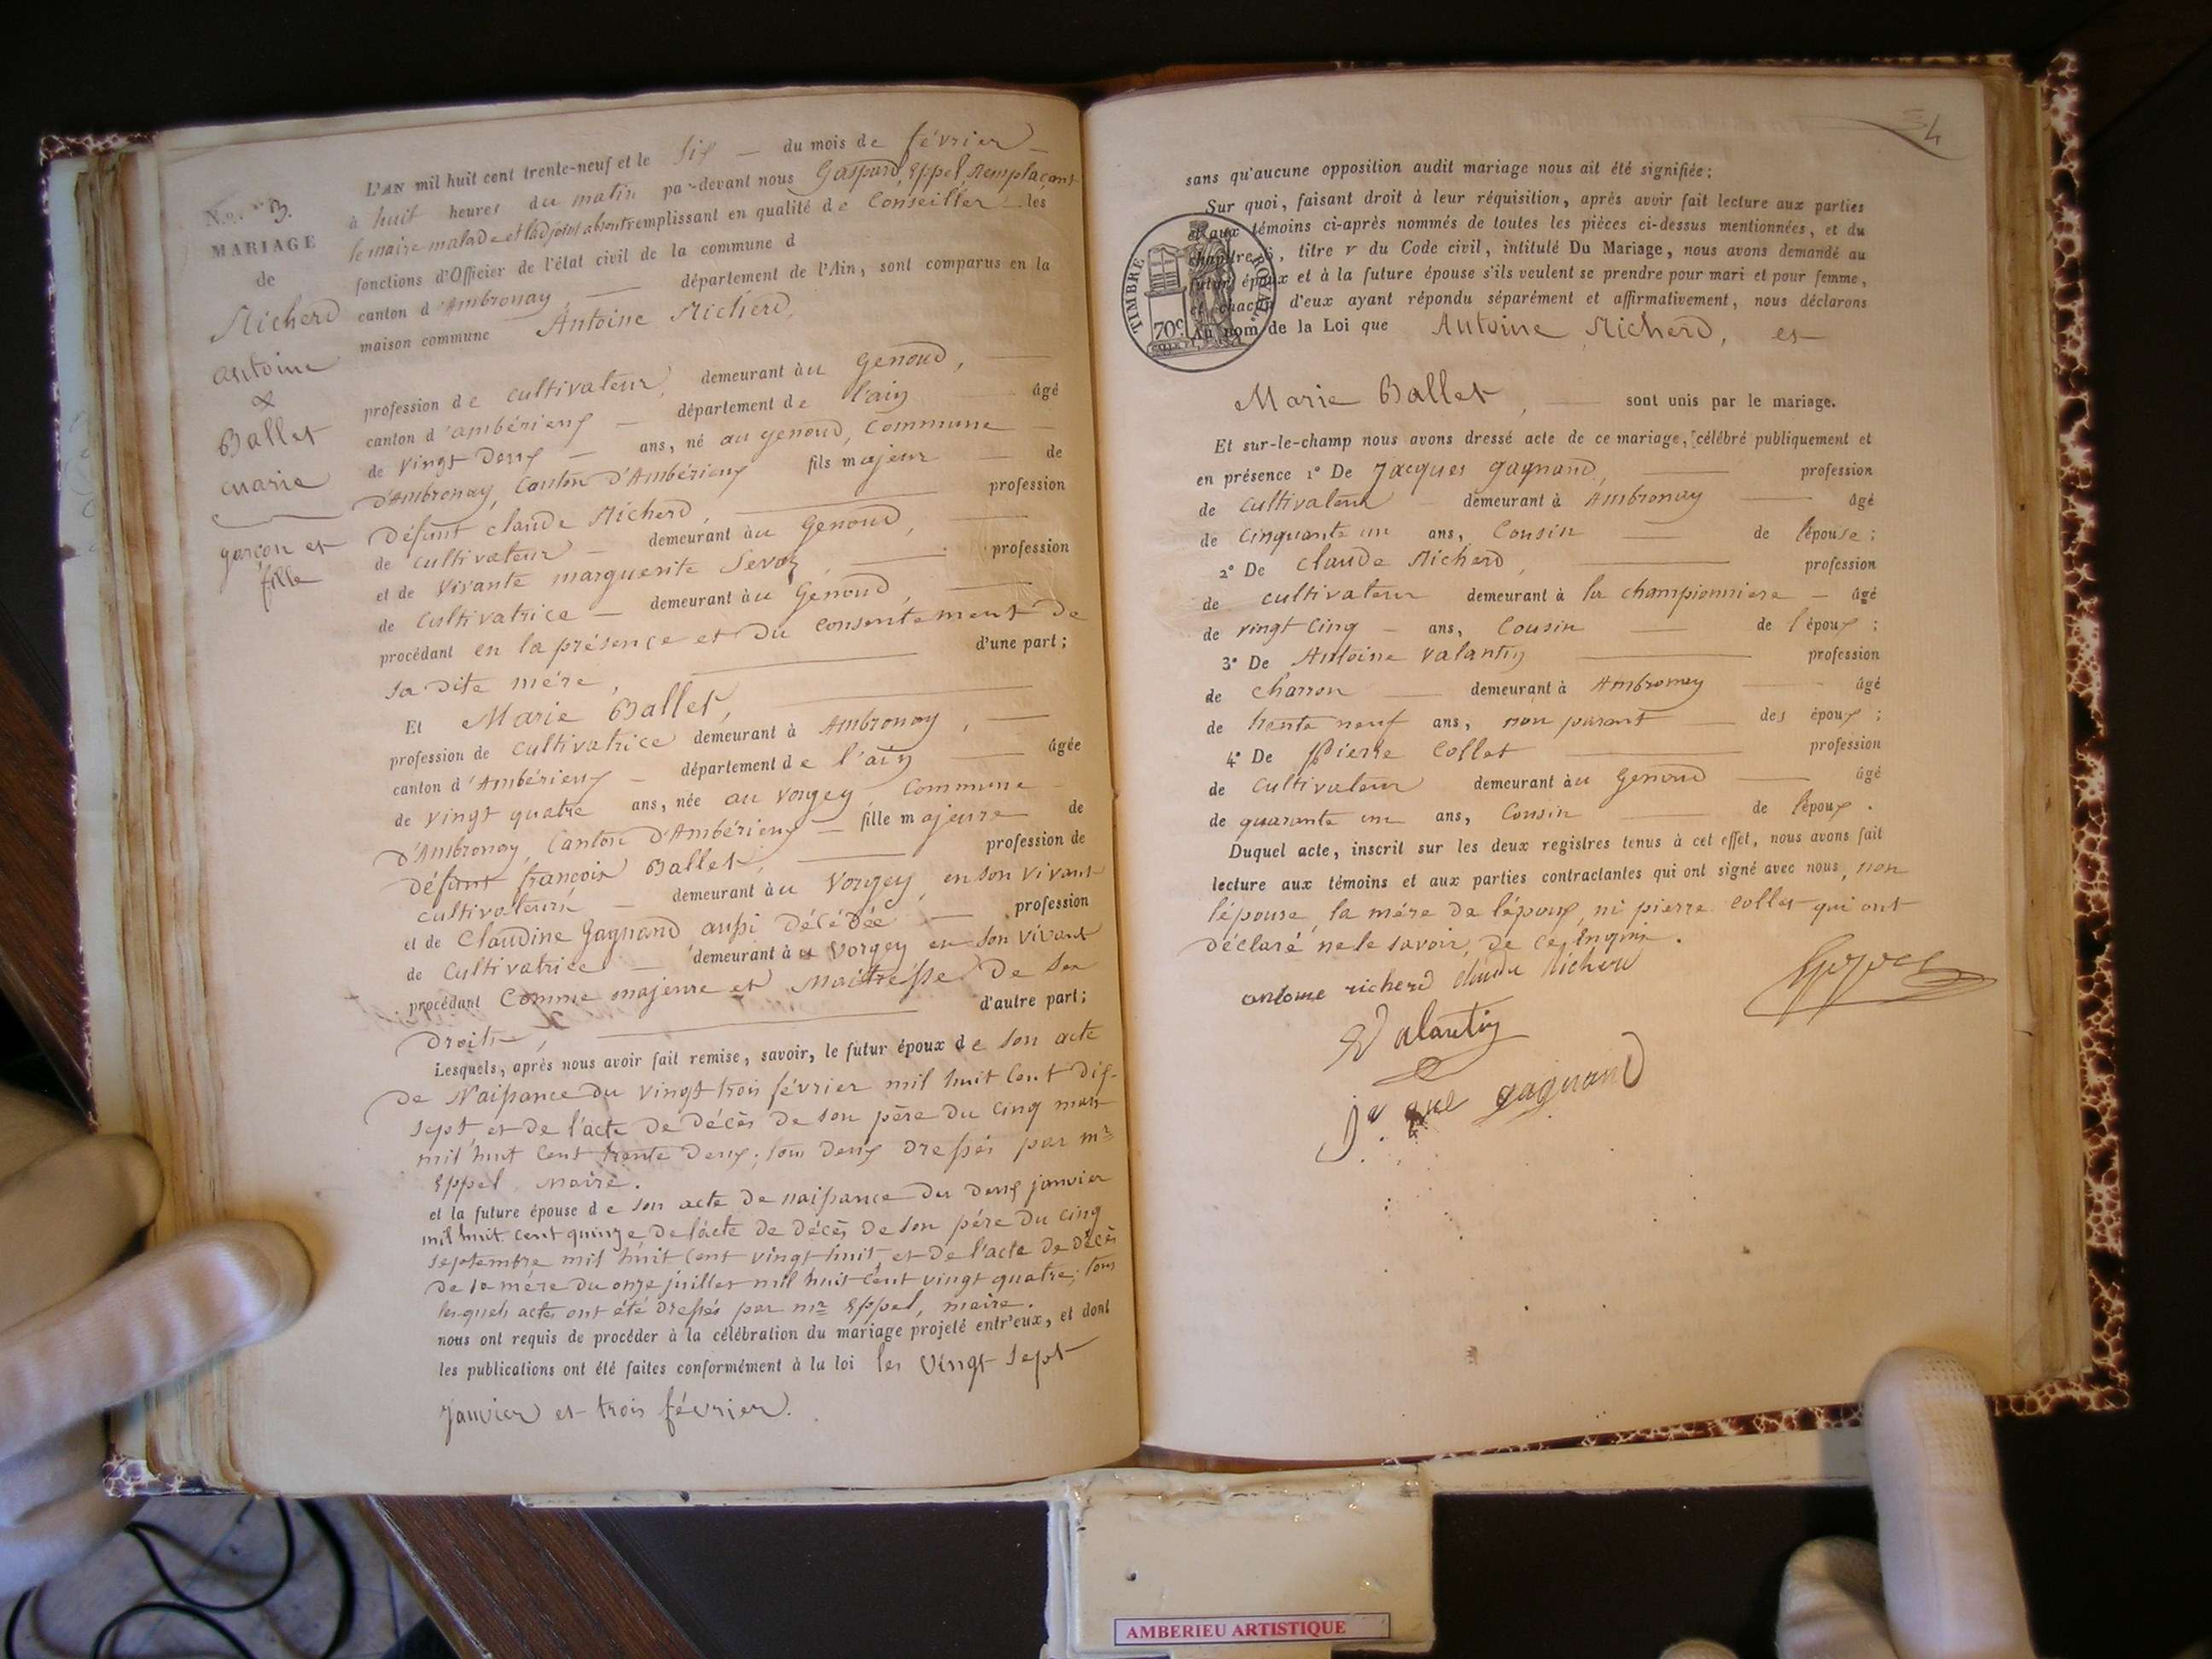 No. 3.
MARIAGE
de
Richerd
antoine
&
Ballet
marie
garçon et
fille
L'AN mil huit cent trente-neuf et le six — du mois de février —
à huit heures du matin par-devant nous Gaspard Eppel, Remplaçant
le maire malade et l'adjoint absent remplissant en qualité de Conseiller les
fonctions d'Officier de l'état civil de la commune d
canton d'Ambronay, — département de l'Ain, sont comparus en la
maison commune Antoine Richerd,
profession de cultivateur, demeurant au Genoud, —
canton d'ambérieux — département de l'ain âgé
de vingt deux — ans, né au genoud, Commune —
D'Ambronay, Canton D'Ambérieux fils majeur — de
Défunt claude Richerd, — profession
de cultivateur — demeurant au Genoud, —
et de vivante marguerite Sevoz, — profession
de Cultivatrice — demeurant au Genoud, —
procédant en la présence et du consentement de
sa dite mére, — d'une part;
Et Marie Ballet, —
profession de cultivatrice demeurant à Ambronay, —
canton d'Ambérieux — département de l'ain — âgée
de vingt quatre ans, née au Vorgey, Commune —
D'Ambronay, Canton D'Ambérieux — fille majeure de
Défunt françois Ballet, — profession de
cultivateur — demeurant au Vorgey, en son vivant
et de Claudine Gagnand aussi Décédée — profession
de Cultivatrice — demeurant au Vorgey en son vivant
procédant Comme majeure et Maitresse De ses
Droits, — d'autre part;
Lesquels, après nous avoir fait remise, savoir, le futur époux de son acte
De Naissance du vingt trois février mil huit Cent dix-
sept et de l'acte de Décès de son père du cinq mars
mil huit Cent trente Deux; tous Deux Dressés par mr
Eppel, maire.
et la future épouse de son acte de naissance du deux janvier
mil huit cent quinze, de l'acte de décès de son pére du cinq
septembre mil huit Cent vingt huit, et de l'acte de Décès
de sa mére du onze juillet mil huit Cent vingt quatre; tous
lesquels actes ont été dressés par mr Eppel, maire.
nous ont requis de procéder à la célébration du mariage projeté entr'eux, et dont
les publications ont été faites conformément à la loi les vingt sept
janvier et trois février.
34
sans qu'aucune opposition audit mariage nous ait été signifiée;
Sur quoi, faisant droit à leur réquisition, après avoir fait lecture aux parties
et aux témoins ci-après nommés de toutes les pièces ci-dessus mentionnées, et du
chapitre 6, titre v du Code civil, intitulé Du Mariage, nous avons demandé au
futur époux et à la future épouse s'ils veulent se prendre pour mari et pour femme,
et chacun d'eux ayant répondu séparément et affirmativement, nous déclarons
Au nom de la Loi que Antoine Richerd, et
TIMBRE ROYAL
70c.
Marie Ballet, — sont unis par le mariage.
Et sur-le-champ nous avons dressé acte de ce mariage, célébré publiquement et
en présence 1° De Jacques gagnand, — profession
de cultivateur — demeurant à Ambronay — âgé
de cinquante un ans, Cousin — de l'épouse;
2° De Claude Richerd, — profession
de cultivateur demeurant à la championniere — âgé
de vingt cinq — ans, Cousin — de l'époux;
3° De Antoine Valantin — profession
de charron — demeurant à Ambronay — âgé
de trente neuf ans, non parent — des époux;
4° De Pierre Collet — profession
de Cultivateur demeurant au Genoud — âgé
de quarante un ans, Cousin — de l'époux.
Duquel acte, inscrit sur les deux registres tenus à cet effet, nous avons fait
lecture aux témoins et aux parties contractantes qui ont signé avec nous, non
l'épouse, la mére de l'époux, ni pierre Collet qui ont
déclaré ne le savoir, de ce
antoine richerd claude Richerd
Valantin
gagnand
AMBERIEU ARTISTIQUE